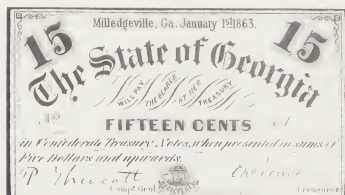 Milledgeville, Ga. January 1st 1863.
15 15
The State of Georgia
WILL PAY THE BEARER AT HER TREASURY
FIFTEEN CENTS
in Confederate Treasury Notes, when presented in sums of
Five Dollars and upwards.
Compt Genl Treasurer